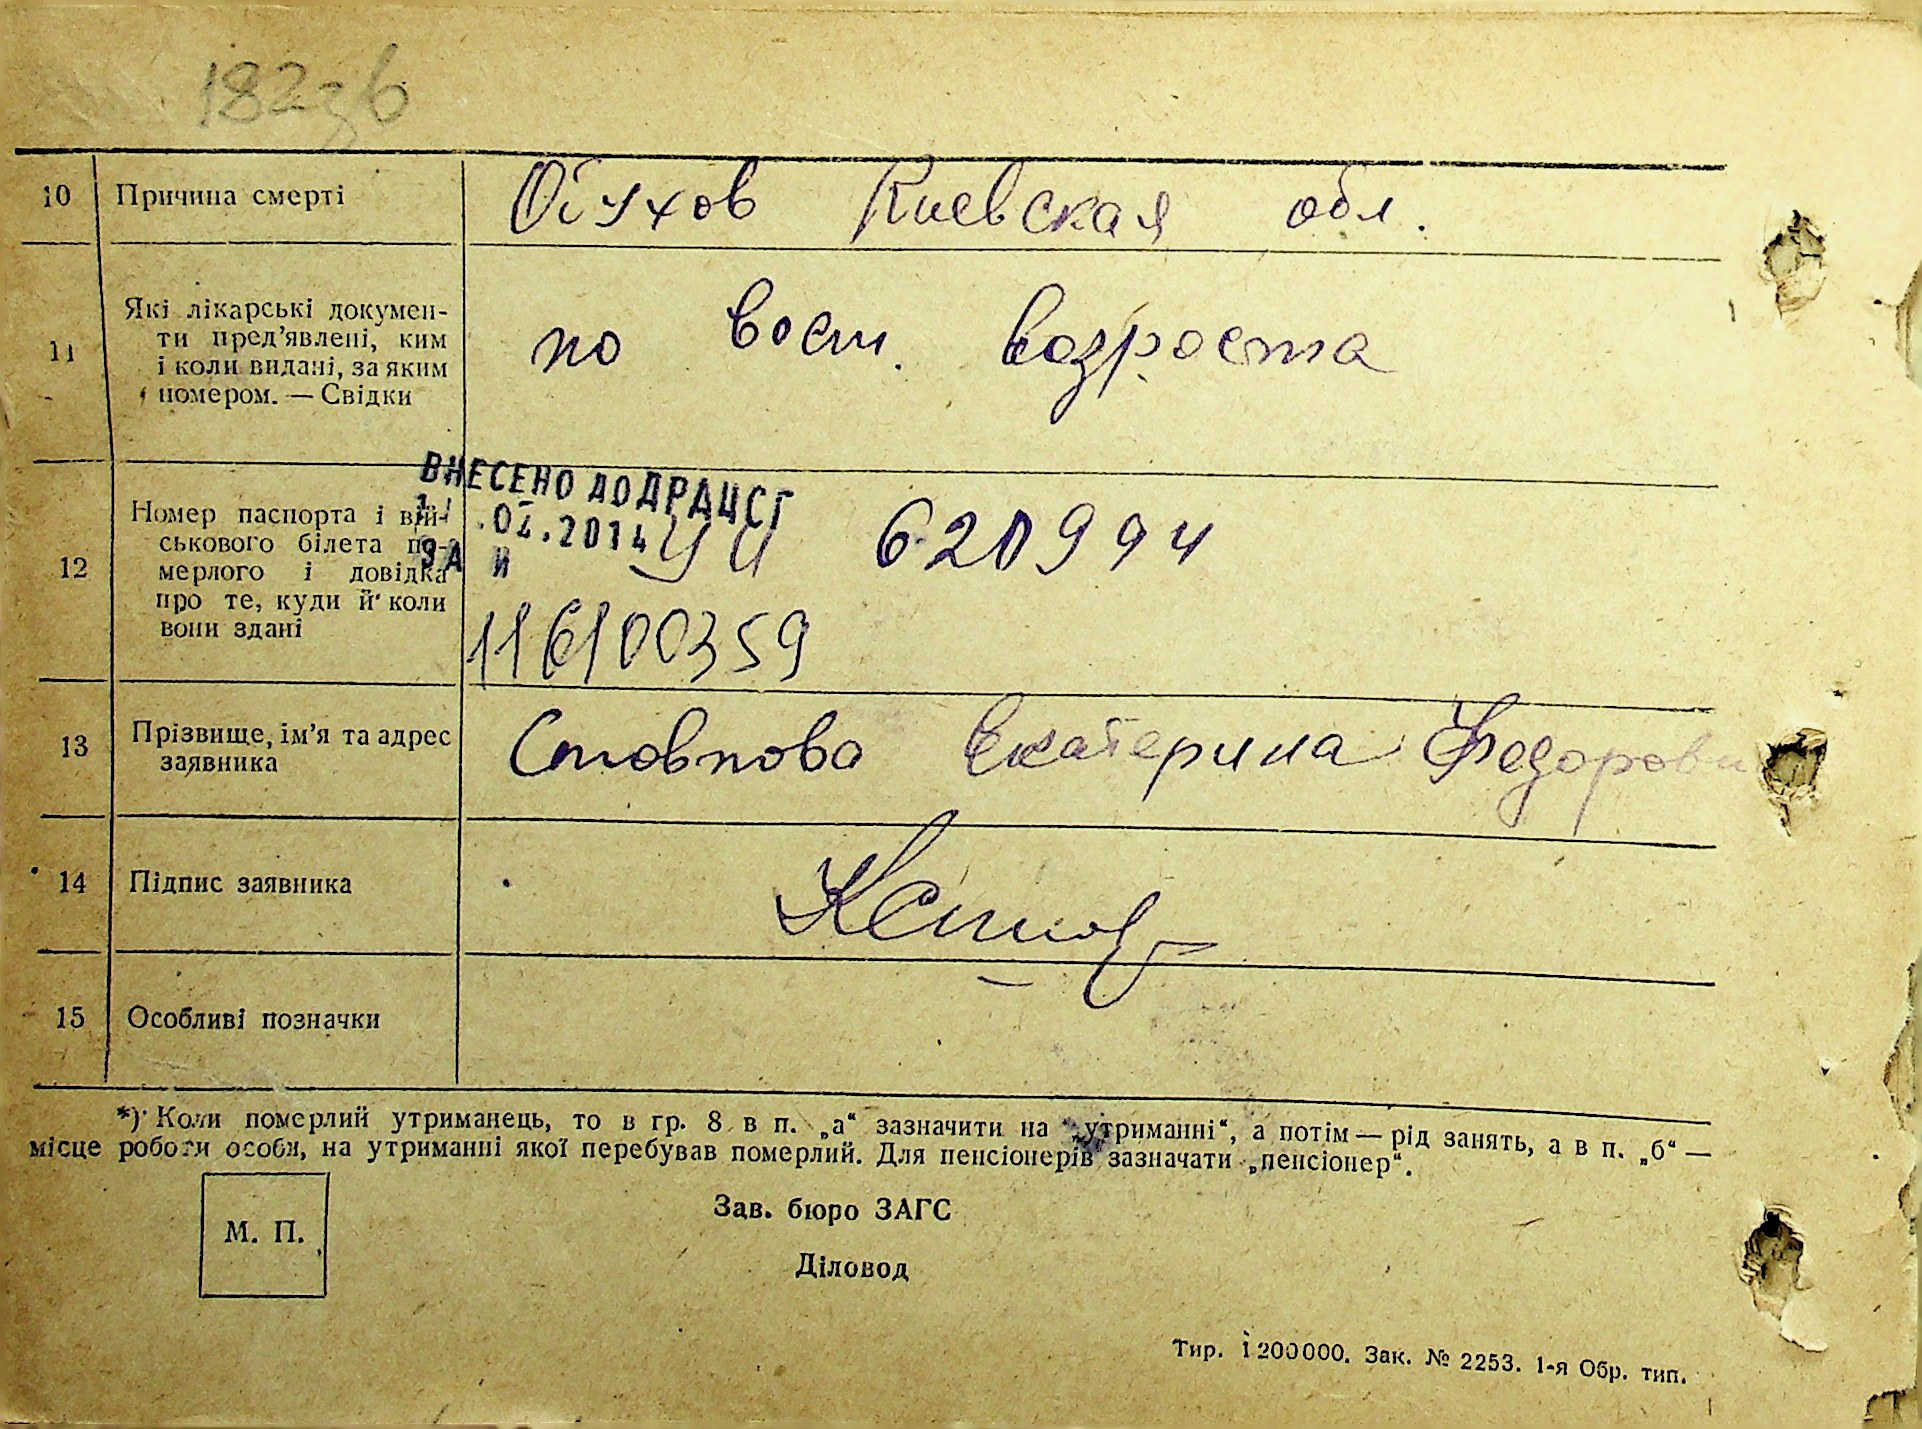 182зв
10 Причина смерті Обухов Киевская обл.
11 Які лікарські докумен-
ти пред’явлені, ким
і коли видані, за яким
номером. — Свідки
по восст. возроста
ВНЕСЕНО ДО ДРАЦСГ
.02.2014
ЗА И
12 Номер паспорта і вій-
ськового білета по-
мерлого і довідка
про те, куди й коли
вони здані
620994
116100359
13 Прізвище, ім’я та адрес
заявника
Стовпова Екатерина Федоровн
14 Підпис заявника
15 Особливі позначки
*) Коли померлий утриманець, то в гр. 8 в п. „а“ зазначити на „утриманні“, а потім — рід занять, а в п. „б“ —
місце роботи особи, на утриманні якої перебував померлий. Для пенсіонерів зазначати „пенсіонер“.
М. П.
Зав. бюро ЗАГС
Діловод
Тир. 1 200000. Зак. № 2253. 1-я Обр. тип.